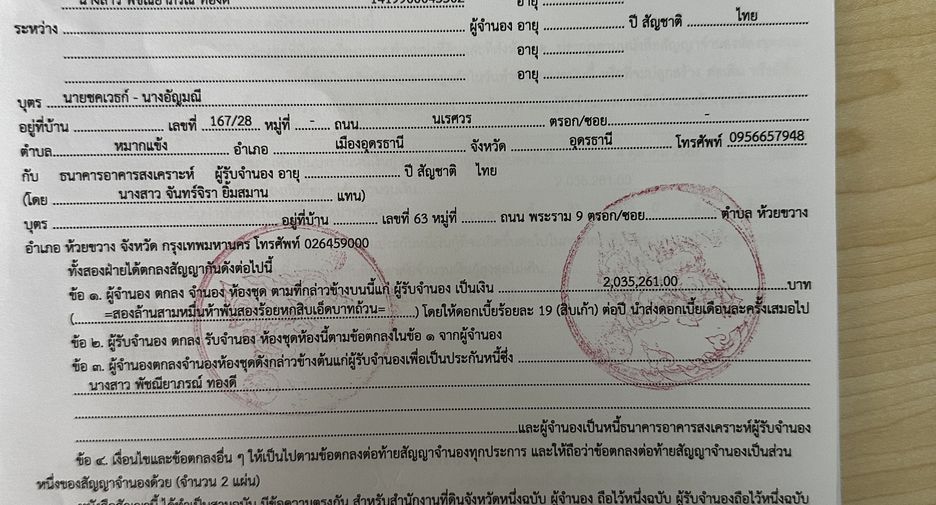 นางสาว พัชณียาภรณ์ ทองดี อายุ
ระหว่าง ผู้จำนอง อายุ ปี สัญชาติ ไทย
อายุ
อายุ
บุตร นายชคเวธก์ - นางอัญมณี
อยู่ที่บ้าน เลขที่ 167/28 หมู่ที่ - ถนน นเรศวร ตรอก/ซอย -
ตำบล หมากแข้ง อำเภอ เมืองอุดรธานี จังหวัด อุดรธานี โทรศัพท์ 0956657948
กับ ธนาคารอาคารสงเคราะห์ ผู้รับจำนอง อายุ ปี สัญชาติ ไทย
(โดย นางสาว จันทร์จิรา ยิ้มสมาน แทน)
บุตร อยู่ที่บ้าน เลขที่ 63 หมู่ที่ ถนน พระราม 9 ตรอก/ซอย ตำบล ห้วยขวาง
อำเภอ ห้วยขวาง จังหวัด กรุงเทพมหานคร โทรศัพท์ 026459000
ทั้งสองฝ่ายได้ตกลงสัญญากันดังต่อไปนี้
ข้อ ๑. ผู้จำนอง ตกลง จำนอง ห้องชุด ตามที่กล่าวข้างบนนี้แก่ ผู้รับจำนอง เป็นเงิน 2,035,261.00 บาท
( =สองล้านสามหมื่นห้าพันสองร้อยหกสิบเอ็ดบาทถ้วน= ) โดยให้ดอกเบี้ยร้อยละ 19 (สิบเก้า) ต่อปี นำส่งดอกเบี้ยเดือนละครั้งเสมอไป
ข้อ ๒. ผู้รับจำนอง ตกลง รับจำนอง ห้องชุดห้องนี้ตามข้อตกลงในข้อ ๑ จากผู้จำนอง
ข้อ ๓. ผู้จำนองตกลงจำนองห้องชุดดังกล่าวข้างต้นแก่ผู้รับจำนองเพื่อเป็นประกันหนี้ซึ่ง
นางสาว พัชณียาภรณ์ ทองดี
และผู้จำนองเป็นหนี้ธนาคารอาคารสงเคราะห์ผู้รับจำนอง
ข้อ ๔. เงื่อนไขและข้อตกลงอื่น ๆ ให้เป็นไปตามข้อตกลงต่อท้ายสัญญาจำนองทุกประการ และให้ถือว่าข้อตกลงต่อท้ายสัญญาจำนองเป็นส่วน
หนึ่งของสัญญาจำนองด้วย (จำนวน 2 แผ่น)
หนังสือสัญญานี้ ได้ทำเป็นสามฉบับ มีข้อความตรงกัน สำหรับสำนักงานที่ดินจังหวัดหนึ่งฉบับ ผู้จำนอง ถือไว้หนึ่งฉบับ ผู้รับจำนองถือไว้หนึ่งฉบับ